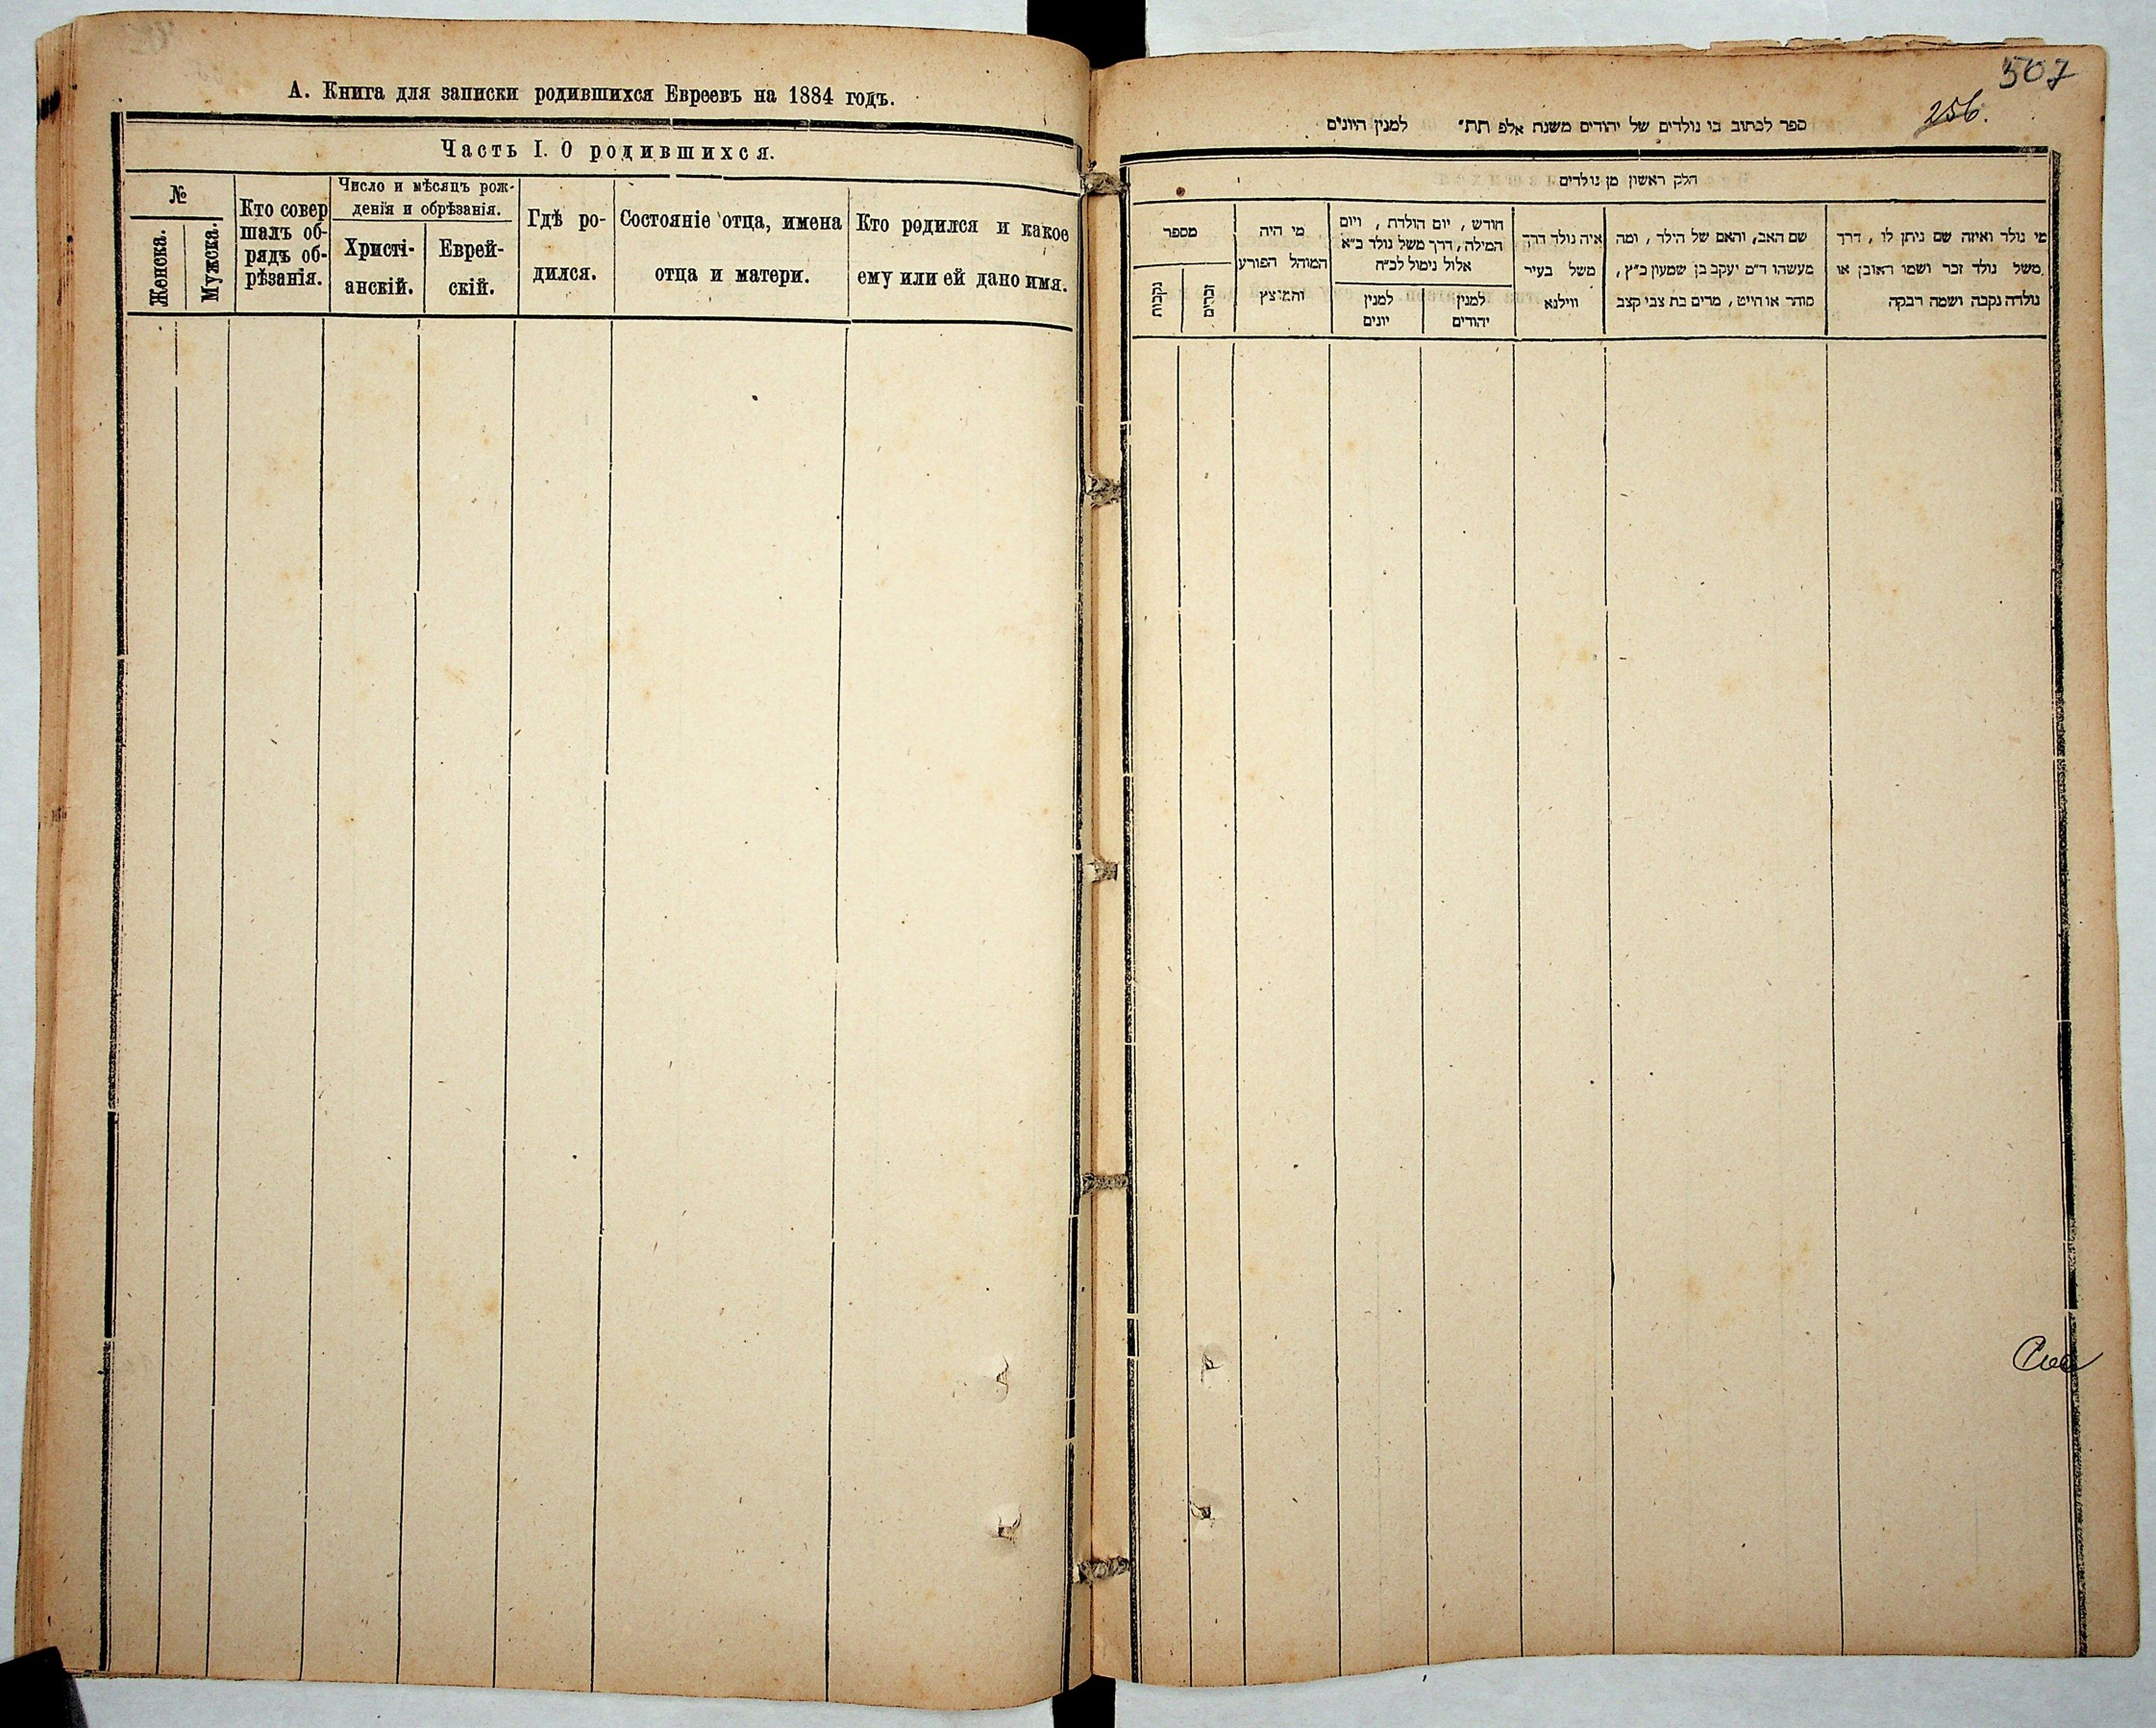 А. Книга для записки родившихся Евреевъ на 1884 годъ.
Часть I. О родившихся.
№
Женска.
Мужска.
Кто совер
шалъ об-
рядъ об-
рѣзанія.
Число и мѣсяцъ рож-
денія и обрѣзанія.
Христі-
анскій.
Еврей-
скій.
Гдѣ ро-
дился.
Состояніе отца, имена
отца и матери.
Кто родился и какое
ему или ей дано имя.
507
256.
ספר לכתוב בו נולדים של יהודים משנת אלפ תת״ למנין היונים
חלק ראשון מן נולדים
מספר
נקבות
זכרים
מי היה
המוהל הפורע
והמוצץ
חורש, יום הולדת, ויום
המילה, דרך משל נולד כ״א
אלול נימול לכ״ח
למנין
יונים
למנין
יהודים
איה נולד דרך
משל בעיר
ווילנא
שם האב, והאם של הילד, ומה
מעשהו ד״מ יעקב בן שמעון כ״ץ,
סוחר או חייט, מרים בת צבי קצב
מי נולד ואיזה שם ניתן לו, דרך
משל נולד זכר ושמו ראובן או
נולדה נקבה ושמה רבקה